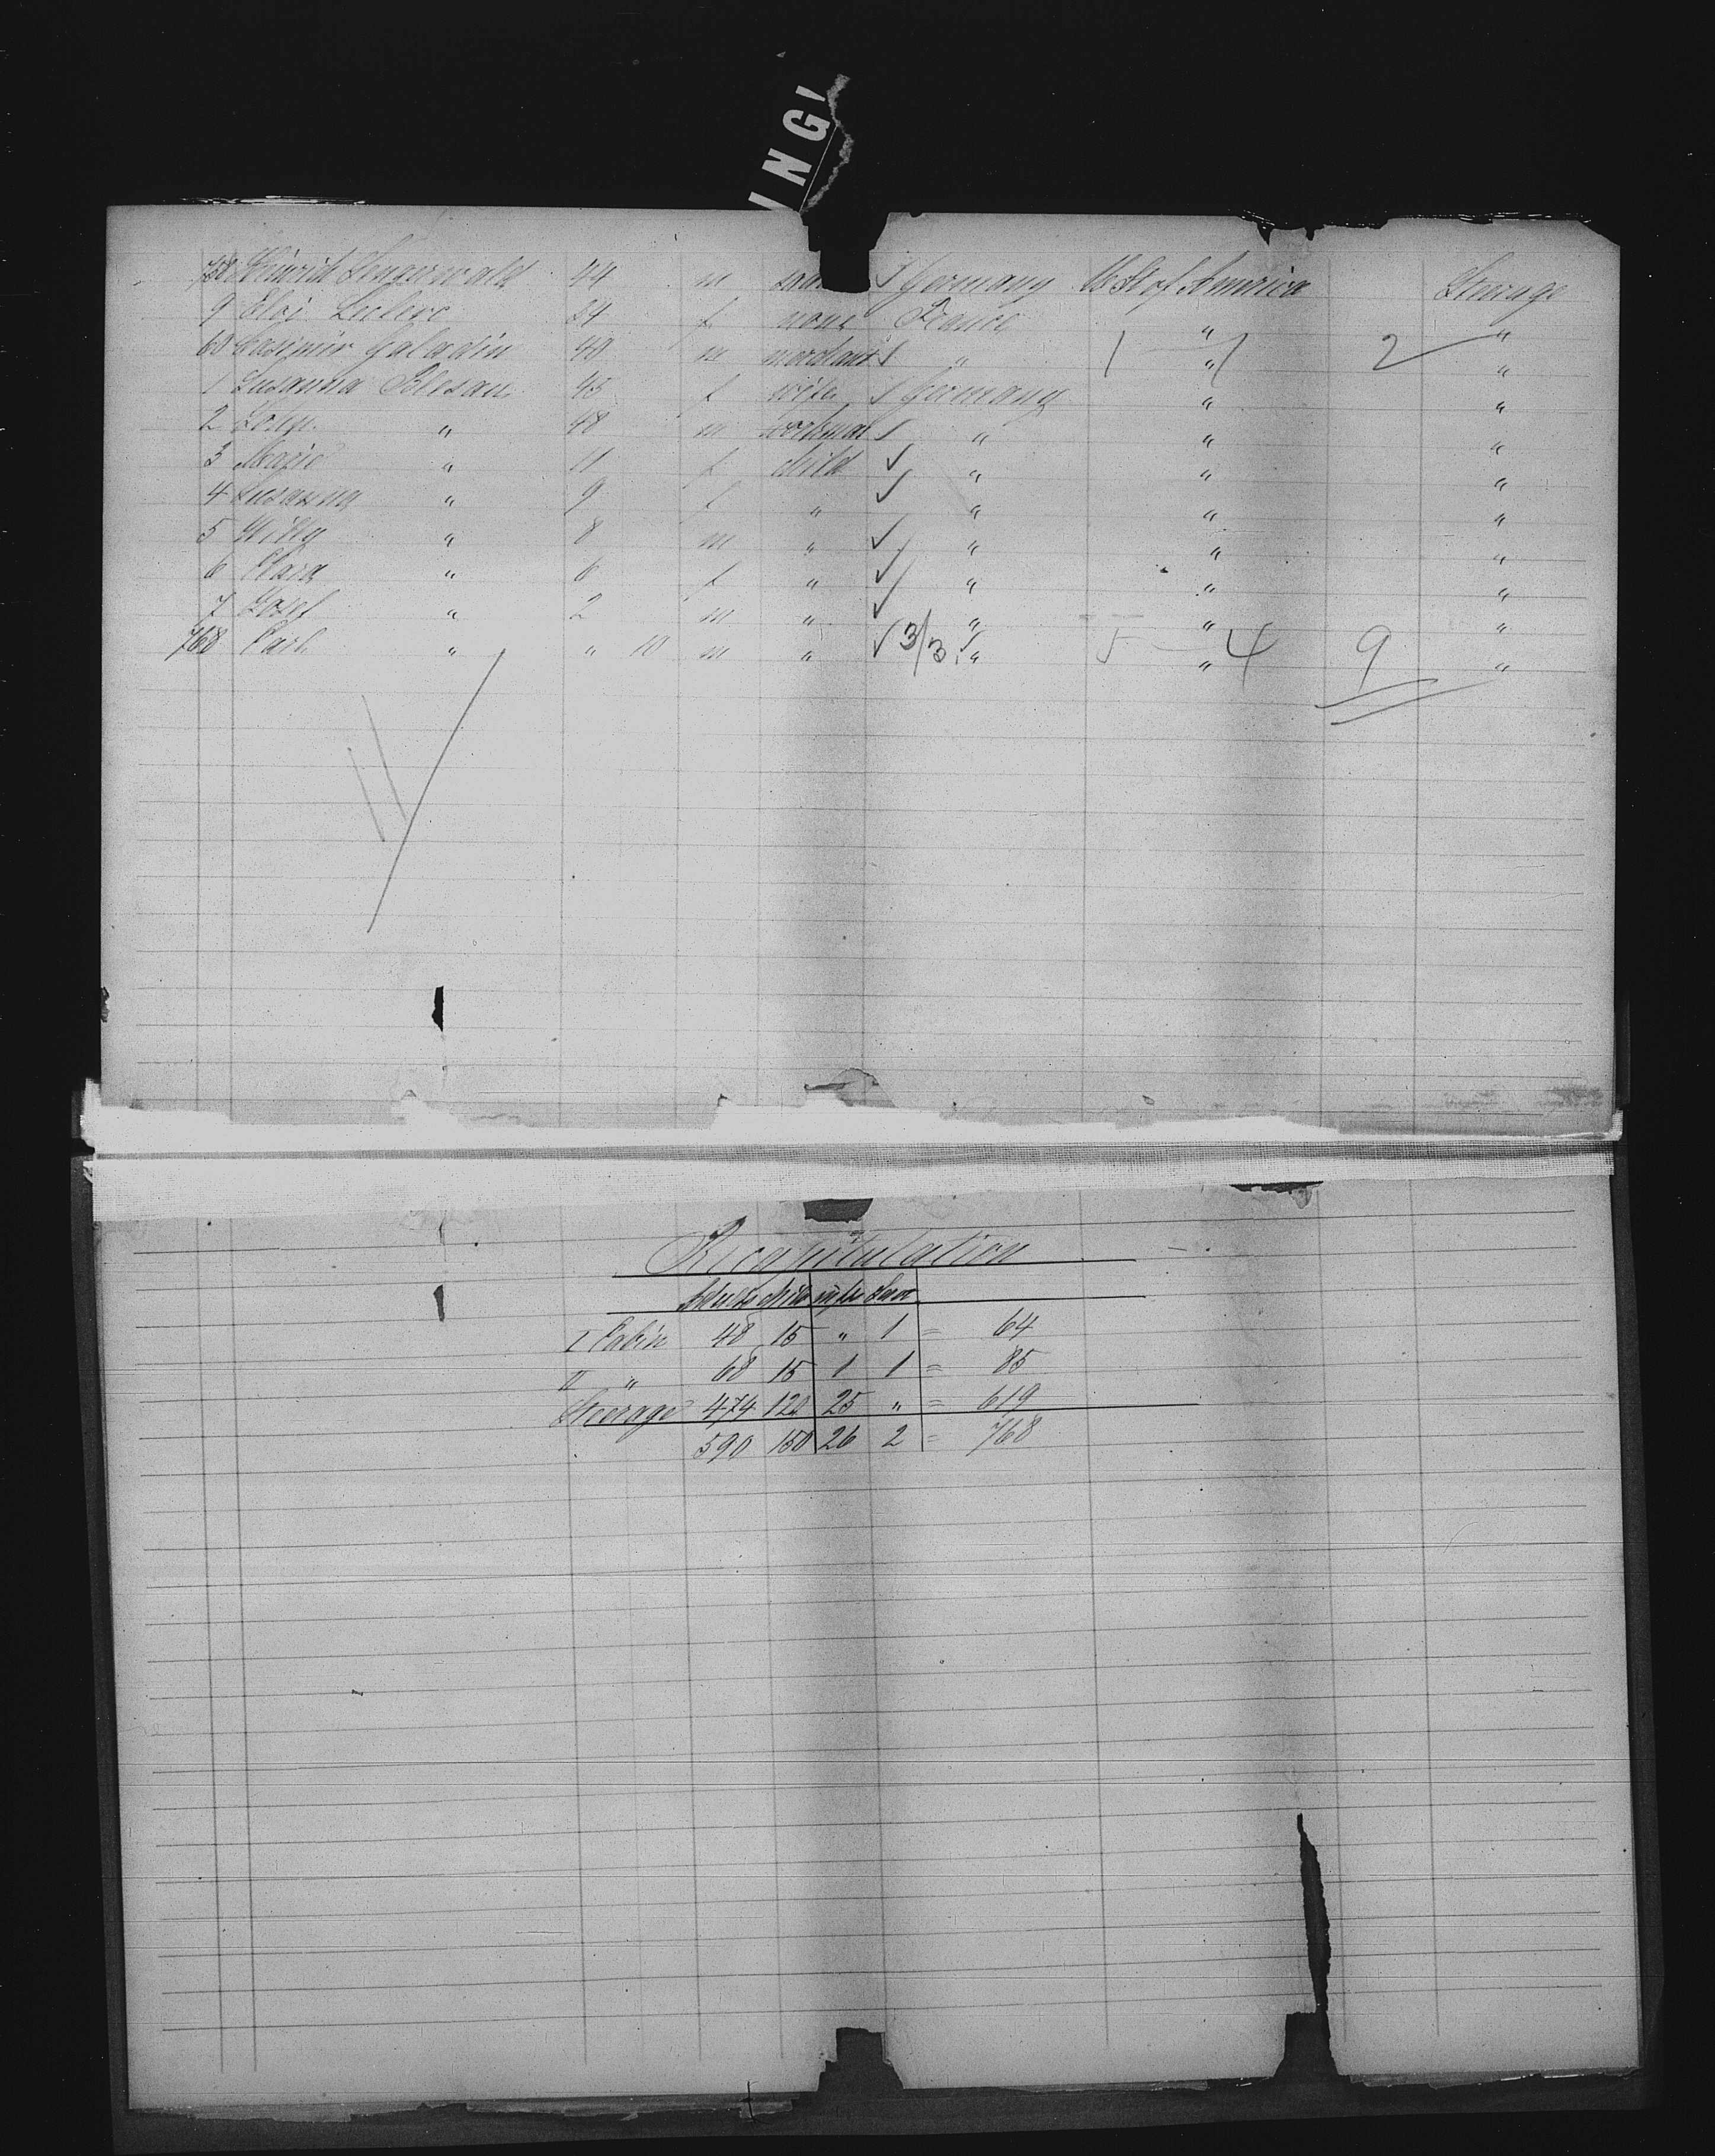 ING
758 Heinrich Sengerwald 44 m Germany U St of America Steerage
9 Eloi Leclerc 24 f none France " "
60 Casimir Galadin 40 m merchant " " 2 "
1 Susanna Blesan 45 f wife Germany " "
2 " 48 m workman " " "
3 Marie " 11 f child " " "
4 Susanna " 9 f " " " "
5 Willy " 8 m " " " "
6 Clara " 6 f " " " "
7 Josef " 2 m " " " "
768 Carl " " 10 m " 3/3 " 5 - 4 " 9 "
Recapitulation
Adults child inft
I Cabin 48 15 " 1 = 64
II " 68 15 1 1 = 85
Steerage 474 120 25 " = 619
590 150 26 2 = 768